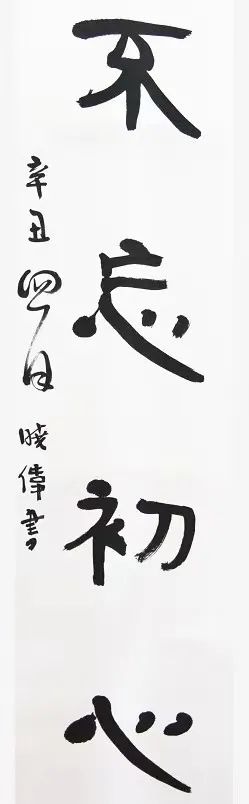 不忘初心
辛丑四月 晓偉書